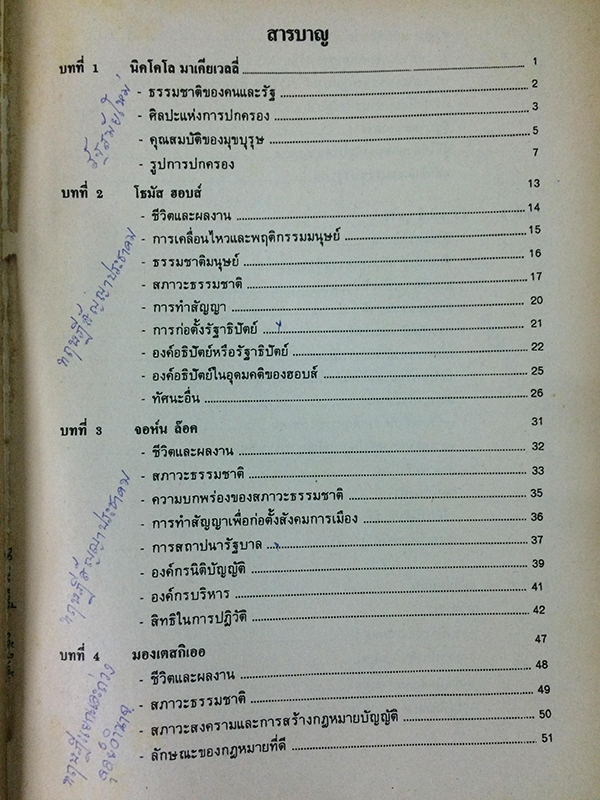 สารบาญ
บทที่ 1 นิคโคโล มาเคียเวลลี่ 1
- ธรรมชาติของคนและรัฐ 2
- ศิลปะแห่งการปกครอง 3
- คุณสมบัติของมุขบุรุษ 5
- รูปการปกครอง 7
รัฐสมัยใหม่
บทที่ 2 โธมัส ฮอบส์ 13
- ชีวิตและผลงาน 14
- การเคลื่อนไหวและพฤติกรรมมนุษย์ 15
- ธรรมชาติมนุษย์ 16
- สภาวะธรรมชาติ 17
- การทำสัญญา 20
- การก่อตั้งรัฐาธิปัตย์ 21
- องค์อธิปัตย์หรือรัฐาธิปัตย์ 22
- องค์อธิปัตย์ในอุดมคติของฮอบส์ 25
- ทัศนะอื่น 26
ทฤษฎีสัญญาประชาคม
บทที่ 3 จอห์น ล๊อค 31
- ชีวิตและผลงาน 32
- สภาวะธรรมชาติ 33
- ความบกพร่องของสภาวะธรรมชาติ 35
- การทำสัญญาเพื่อก่อตั้งสังคมการเมือง 36
- การสถาปนารัฐบาล 37
- องค์กรนิติบัญญัติ 39
- องค์กรบริหาร 41
- สิทธิในการปฏิวัติ 42
ทฤษฎีสัญญาประชาคม
บทที่ 4 มองเตสกิเออ 47
- ชีวิตและผลงาน 48
- สภาวะธรรมชาติ 49
- สภาวะสงครามและการสร้างกฎหมายบัญญัติ 50
- ลักษณะของกฎหมายที่ดี 51
ทฤษฎีแยกและถ่วง
ดุลอำนาจ